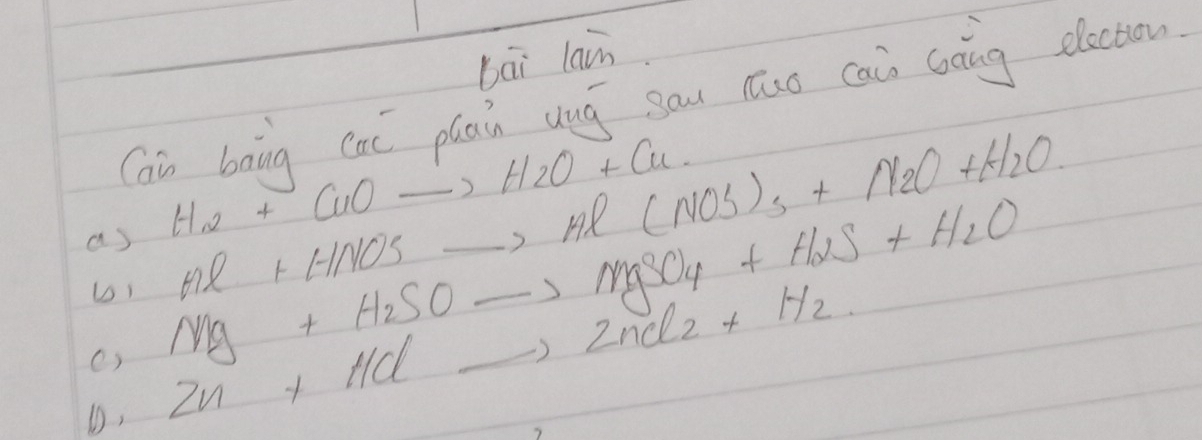 bài làm.
Cân bằng các phản ứng sau theo cân bằng electron.
a) H2 + CuO → H2O + Cu.
b, Al + HNO3 → Al(NO3)3 + N2O + H2O.
c, Mg + H2SO → MgSO4 + H2S + H2O
D, Zn + HCl → ZnCl2 + H2.